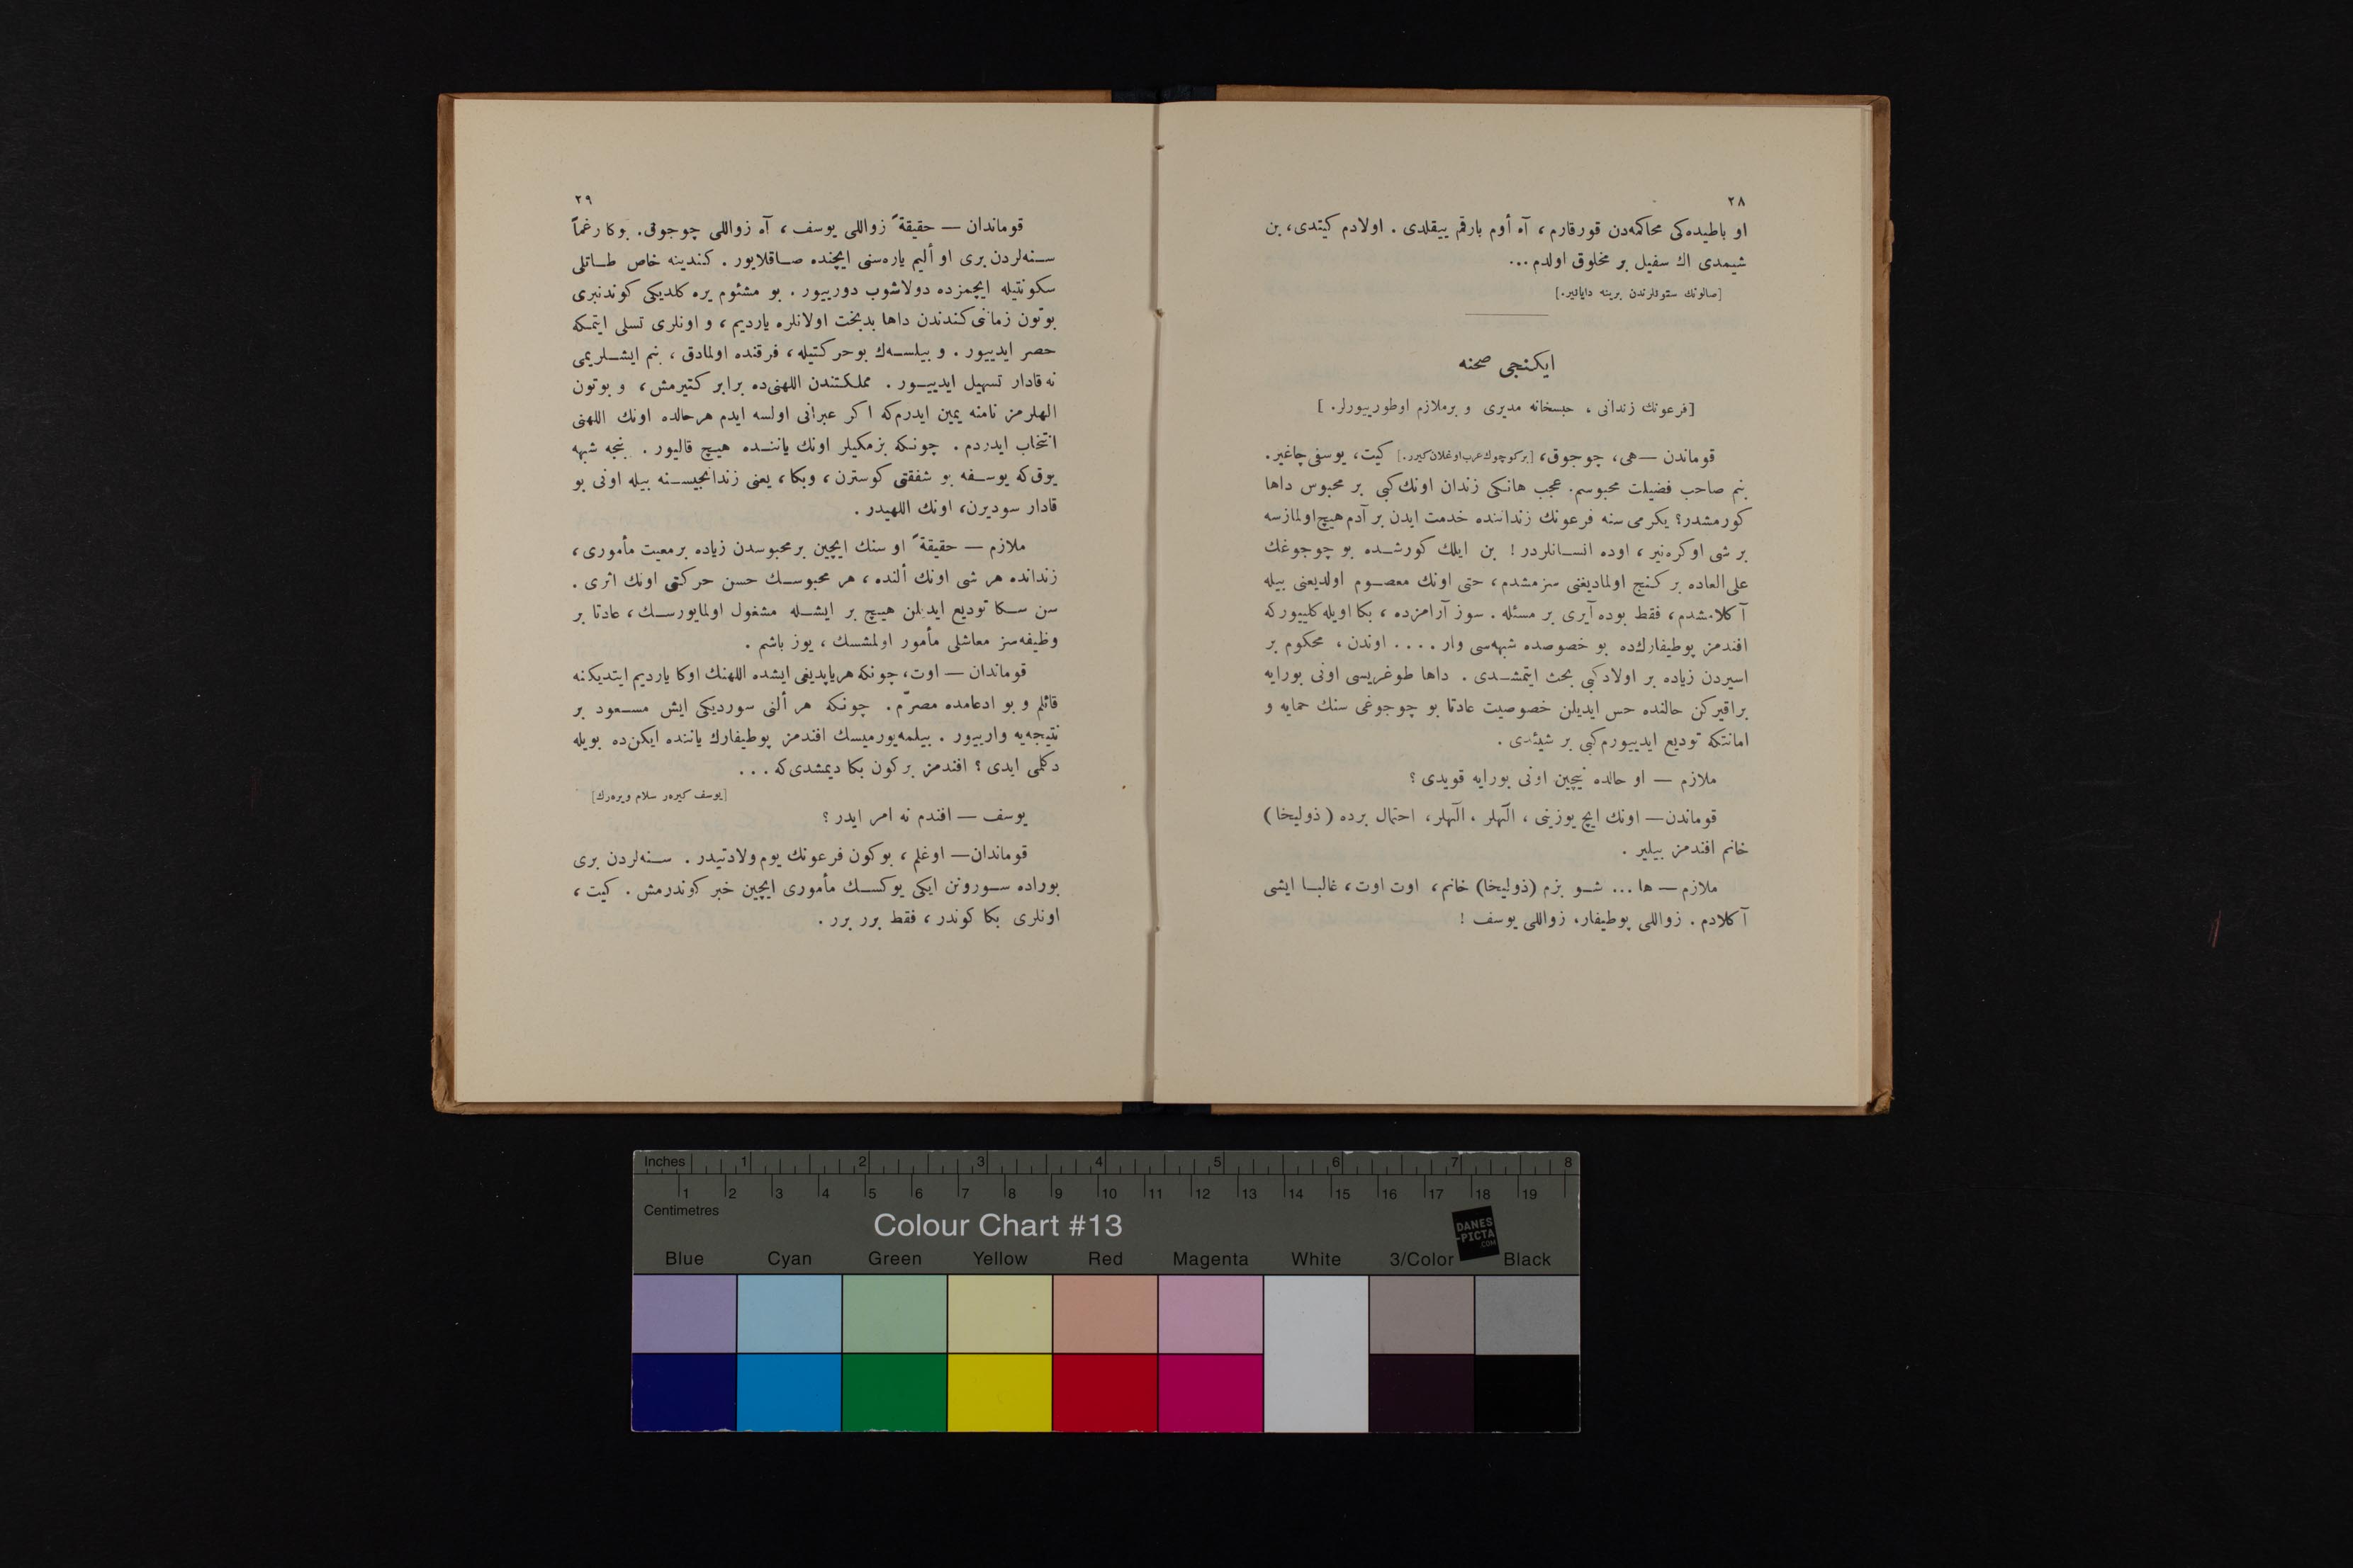 ٢٨
او باطیده‌کی محاکمه‌دن قورقارم ، آه أوم بارقم ییقلدی . اولادم کیتدی، بن
شیمدی اك سفیل بر مخلوق اولدم ...
[صالونك ستونلرندن برینه دایانیر.]
ایکنجی صحنه
[فرعونك زندانی ، حبسخانه مدیری و برملازم اوطورییورلر. ]
قوماندن — هی، چوجوق، [بر کوچوك عرب اوغلان کیرر.] کیت، یوسفی چاغیر.
بنم صاحب فضیلت محبوسم. عجب هانکی زندان اونك کبی بر محبوس داها
کورمشدر؟ یکرمی سنه فرعونك زنداننده خدمت ایدن بر آدم هیچ اولمازسه
بر شی اوکره‌نیر ، اوده انسانلردر ! بن ایلك کورشده بو چوجوغك
علی‌العاده بر کنج اولمادیغنی سزمشدم، حتی اونك معصوم اولدیغنی بیله
آکلامشدم، فقط بوده آیری بر مسئله . سوز آرامزده ، بکا اویله کلییورکه
افندمز پوطیفارك‌ده بو خصوصده شبهه‌سی وار .... اوندن ، محکوم بر
اسیردن زیاده بر اولاد کبی بحث ایتمشدی . داها طوغریسی اونی بورایه
براقیرکن حالنده حس ایدیلن خصوصیت عادتا بو چوجوغی سنك حمایه و
امانتکه تودیع ایدییورم کبی بر شیئدی .
ملازم — او حالده نیچین اونی بورایه قویدی ؟
قوماندن — اونك ایچ یوزینی ، الٓهلر ، الٓهلر، احتمال برده ( ذولیخا )
خانم افندمز بیلیر .
ملازم — ها ... شو بزم (ذولیخا) خانم، اوت اوت، غالبا ایشی
آکلادم . زواللی پوطیفار، زواللی یوسف !
٢٩
قوماندان — حقیقةً زواللی یوسف ، آه زواللی چوجوق. بوکا رغماً
سنه‌لردن بری او ألیم یاره‌سنی ایچنده صاقلایور . کندینه خاص طاتلی
سکونتیله ایچمزده دولاشوب دورییور . بو مشئوم یره کلدیکی کوندنبری
بوتون زماننی کندندن داها بدبخت اولانلره یاردیم ، و اونلری تسلی ایتمکه
حصر ایدییور . و بیلسه‌ك بوحرکتیله ، فرقنده اولمادق ، بنم ایشلریمی
نه قادار تسهیل ایدییور . مملکتندن اللهنی‌ده برابر کتیرمش، و بوتون
الهلرمز نامنه یمین ایدرم‌که اکر عبرانی اولسه ایدم هرحالده اونك اللهنی
انتخاب ایدردم . چونکه بزمکیلر اونك یاننده هیچ قالیور . بنجه شبهه
یوق‌که یوسفه بو شفقتی کوسترن ، وبکا، یعنی زندانجیسنه بیله اونی بو
قادار سودیرن، اونك اللهیدر .
ملازم — حقیقةً او سنك ایچین برمحبوسدن زیاده برمعیت مأموری ،
زندانده هر شی اونك ألنده ، هر محبوسك حسن حرکتی اونك اثری .
سن سکا تودیع ایدیلن هیچ بر ایشله مشغول اولمایورسك ، عادتا بر
وظیفه‌سز معاشلی مأمور اولمشسك ، یوز باشم .
قوماندان — اوت، چونکه هریاپدیغی ایشده اللهنك اوکا یاردیم ایتدیکنه
قائلم و بو ادعامده مصرّم . چونکه هر ألنی سوردیکی ایش مسعود بر
نتیجه‌یه وارییور . بیلمه‌یورمیسك افندمز پوطیفارك یاننده ایکن‌ده بویله
دکلمی ایدی ؟ افندمز برکون بکا دیمشدی‌که ...
[یوسف کیره‌ر سلام ویره‌رك]
یوسف — افندم نه امر ایدر ؟
قوماندان — اوغلم ، بوکون فرعونك یوم ولادتیدر . سنه‌لردن بری
بوراده سورونن ایکی یوکسك مأموری ایچین خبر کوندرمش . کیت ،
اونلری بکا کوندر ، فقط برر برر .
Inches 1 2 3 4 5 6 7 8
1 2 3 4 5 6 7 8 9 10 11 12 13 14 15 16 17 18 19
Centimetres
Colour Chart #13
DANES
-PICTA
.COM
Blue Cyan Green Yellow Red Magenta White 3/Color Black